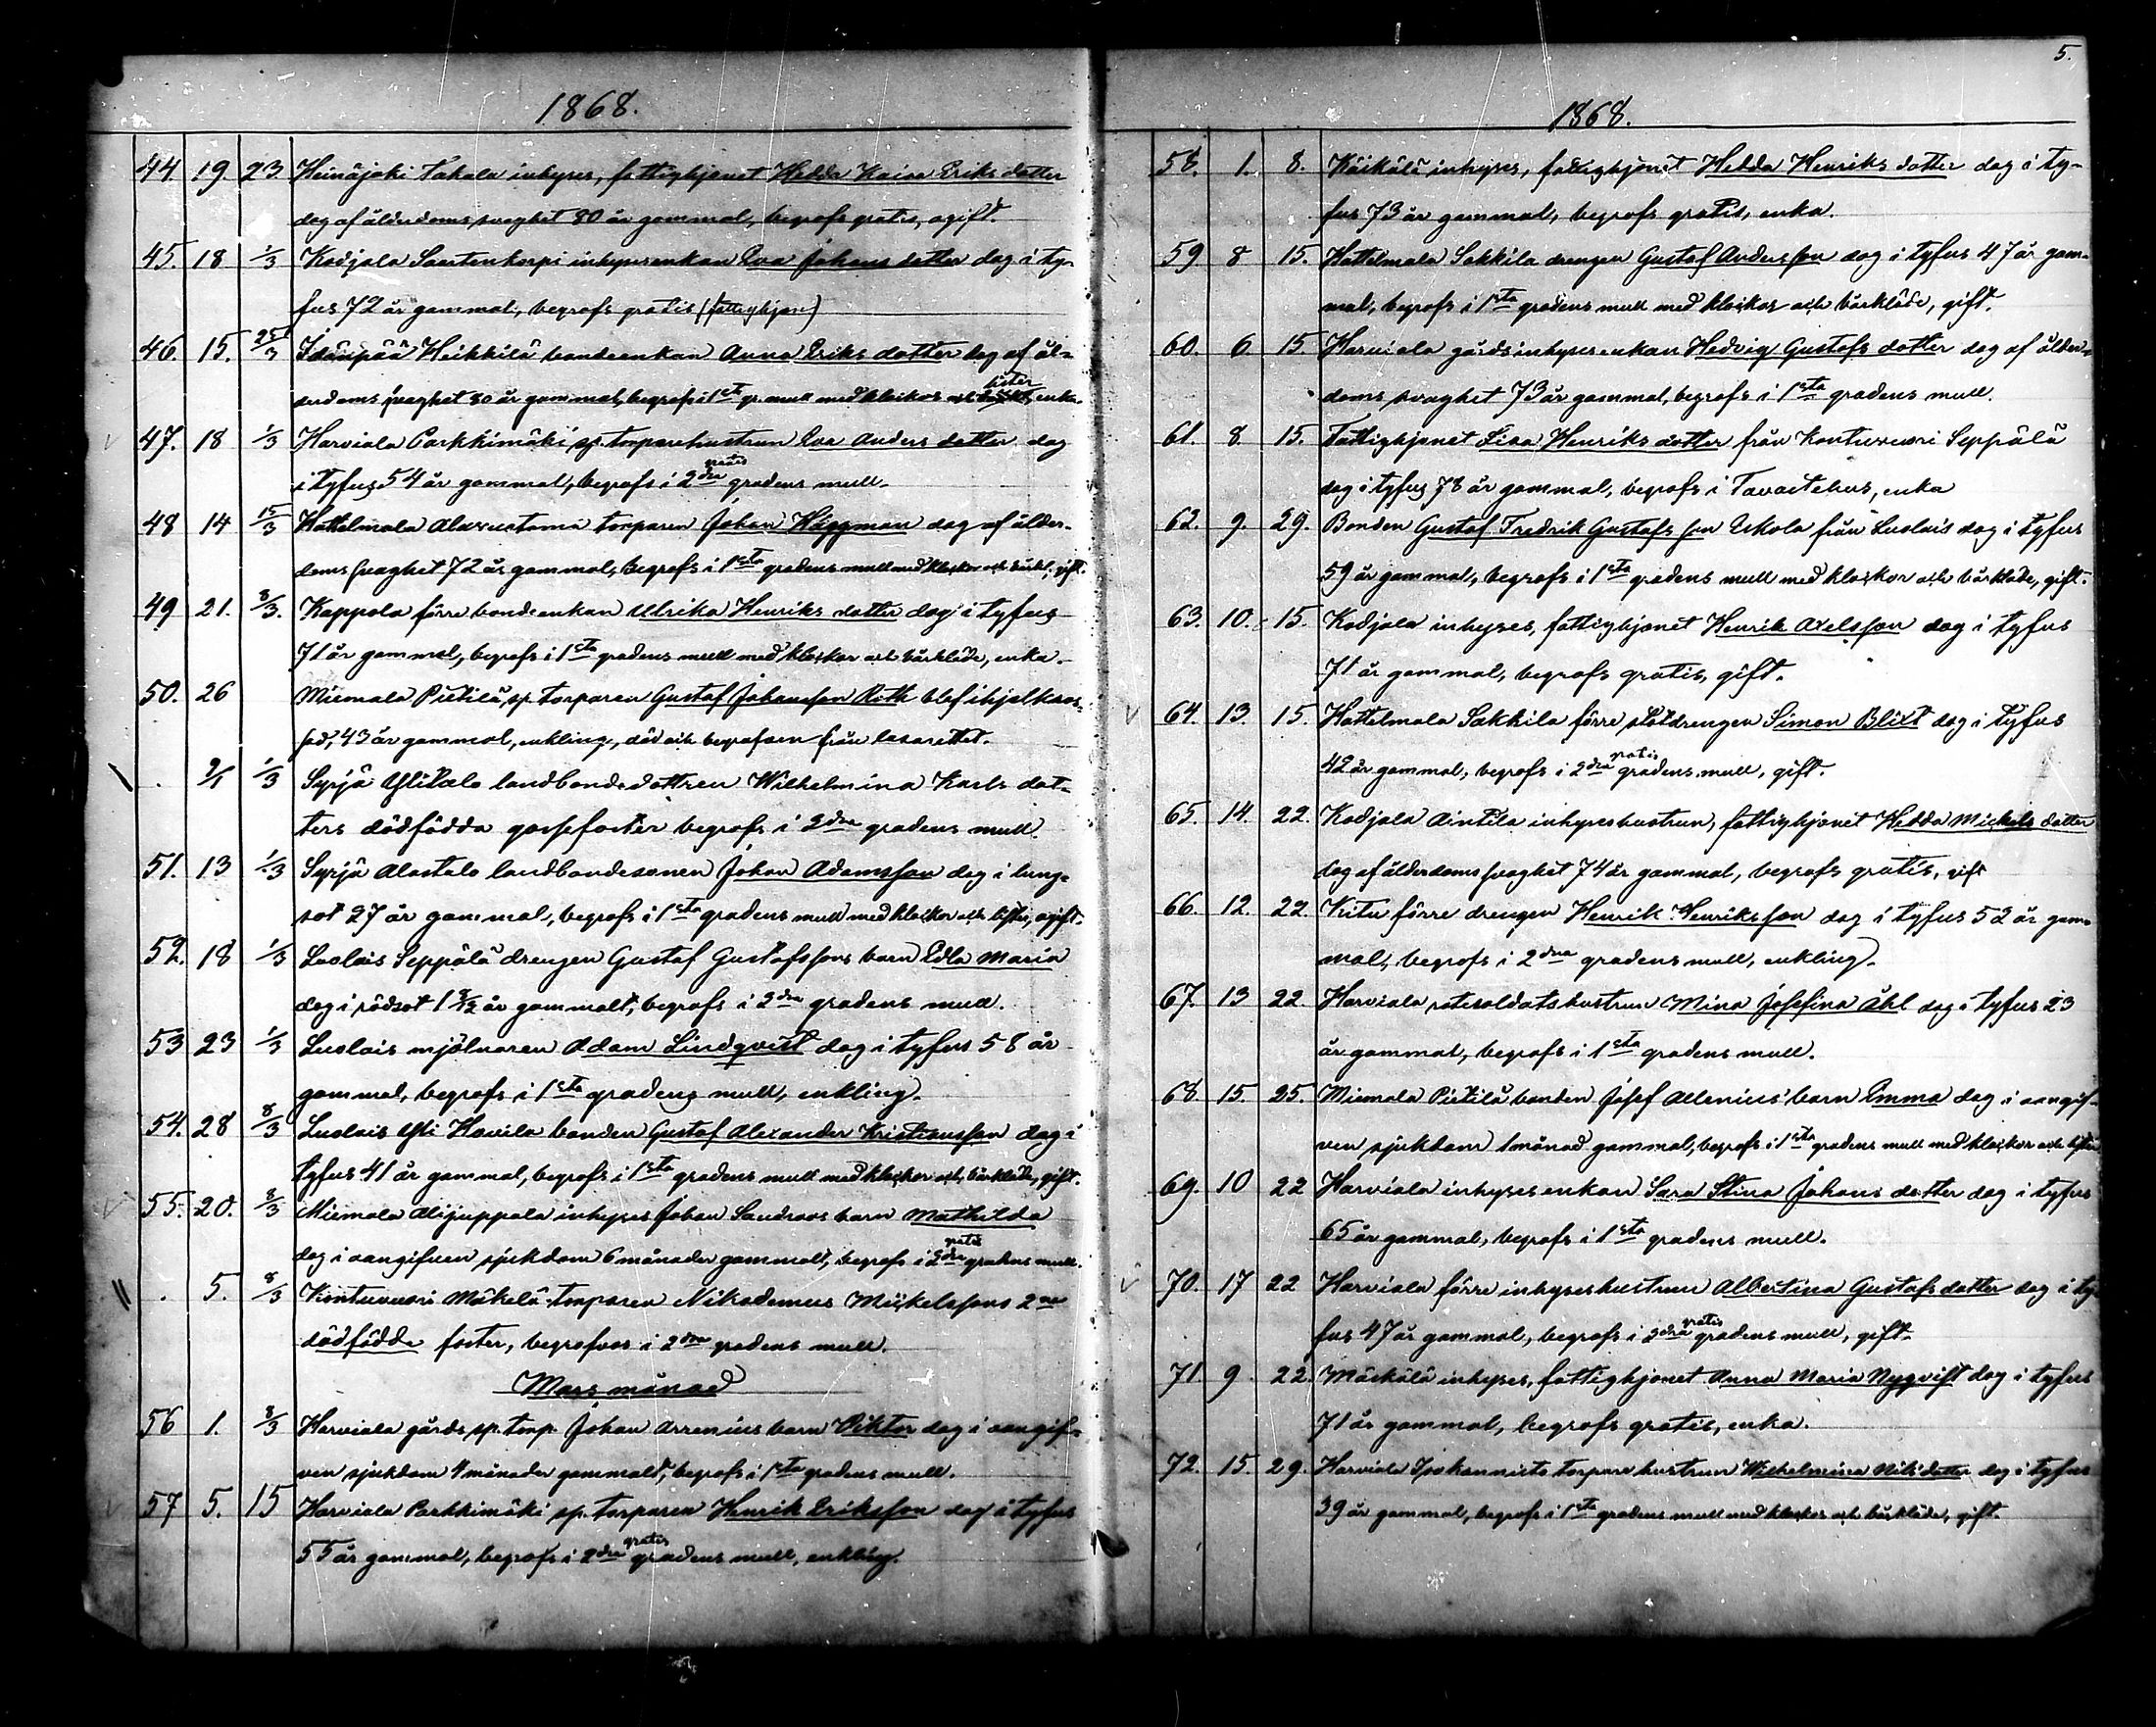 1868.
44. 19. 23. Heinäjoki Takala inhyses, fattighjonet Hedda Kaisa Eriks dotter
dog af ålderdoms svaghet 80 år gammal, begrofs gratis, ogift.
45. 18 1/3 Kodjala Saartenkorpi inhysesenkan Eva Johans dotter dog i ty-
fus 72 år gammal, begrofs gratis (fattighjon)
46. 15. 25/3 Idänpää Heikkilä bondeenkan Anna Eriks dotter dog af ål-
derdoms svaghet 80 år gammal, begrofs i 1sta gr. mull med klockor och lister, enka.
47. 18 1/3 Harviala Parkkimäki sp. torparehustrun Eva Anders dotter dog
i tyfus 54 år gammal, begrofs i 2dra gratis gradens mull.
48 14 15/3 Hattelmala Alaxustama torparen Johan Häggman dog af ålder-
doms svaghet 72 år gammal, begrofs i 1sta gradens mull med klockor och bårkl., gift.
49 21. 8/3. Kappola förre bondeenkan Ulrika Henriks dotter dog i tyfus
71 år gammal, begrofs i 1sta gradens mull med klockor och bårkläde, enka.
50. 26 Miemala Pietilä sp. torparen Gustaf Johansson Roth blef ihjelkros-
sad, 43 år gammal, enkling, död och begrafven från lasarettet.
. 2/1 1/3 Syrjä Ylitalo landbondedottren Wilhelmina Karls dot-
ters dödfödda gossefoster begrofs i 2dra gradens mull.
51. 13 1/3 Syrjä Alastalo landbondesonen Johan Adamsson dog i lung-
sot 27 år gammal, begrofs i 1sta gradens mull med klockor och lister, ogift.
52. 18 1/3 Luolais Seppälä drengen Gustaf Gustafssons barn Edla Maria
dog i rödsot 1 8/12 år gammalt, begrofs i 2dra gradens mull.
53 23 1/3 Luolais mjölnaren Adam Lindqvist dog i tyfus 58 år
gammal, begrofs i 1sta gradens mull, enkling.
54. 28 8/3 Luolais Yli Hovila bonden Gustaf Alexander Kristiansson dog i
tyfus 41 år gammal, begrofs i 1sta gradens mull med klockor och bårkläde, gift.
55. 20. 8/3 Miemala Alijuppala inhyses Johan Sandroos barn Mathilda
dog i oangifven sjukdom 6 månader gammalt, begrofs i 2dra gratis gradens mull.
. 5. 8/3 Kontuvuori Mäkelä torparen Nikodemus Mickelssons 2ne
dödfödde foster, begrofvos i 2dra gradens mull.
Mars månad
56 1. 8/3 Harviala gårds sp. torp. Johan Arrenius barn Viktor dog i oangif-
ven sjukdom 4 månader gammalt, begrofs i 1sta gradens mull.
57 5. 15 Harviala Parkkimäki sp. torparen Henrik Eriksson dog i tyfus
55 år gammal, begrofs i 2dra gratis gradens mull, enkling.
5.
1868.
58. 1. 8. Käikälä inhyses, fattighjonet Hedda Henriks dotter dog i ty-
fus 73 år gammal, begrofs gratis, enka.
59 8 15. Hattelmala Sakkila drengen Gustaf Andersson dog i tyfus 47 år gam-
mal, begrofs i 1sta gradens mull med klockor och bårkläde, gift.
60. 6 15. Harviala gårds inhysesenkan Hedvig Gustafs dotter dog af ålder-
doms svaghet 73 år gammal, begrofs i 1sta gradens mull.
61. 8 15. Fattighjonet Lisa Henriks dotter från Kontuvuori Seppälä
dog i tyfus 78 år gammal, begrofs i Tavastehus, enka
62. 9. 29. Bonden Gustaf Fredrik Gustafsson Eskola från Luolais dog i tyfus
59 år gammal, begrofs i 1sta gradens mull med klockor och bårkläde, gift.
63. 10. 15. Kodjala inhyses, fattighjonet Henrik Axelsson dog i tyfus
71 år gammal, begrofs gratis, gift.
64. 13. 15. Hattelmala Sakkila förre slotdrengen Simon Blixt dog i tyfus
42 år gammal, begrofs i 2dra gratis gradens mull, gift.
65. 14. 22. Kodjala Ainkila inhyseshustrun, fattighjonet Hedda Mickels dotter
dog af ålderdoms svaghet 74 år gammal, begrofs gratis, gift
66. 12. 22. Kitu förre drengen Henrik Henriksson dog i tyfus 52 år gam-
mal, begrofs i 2dra gradens mull, enkling.
67. 13 22. Harviala rotesoldatshustrun Mina Josefina Åhl dog i tyfus 23
år gammal, begrofs i 1sta gradens mull.
68 15. 25. Miemala Pietilä bonden Josef Allenius' barn Emma dog i oangif-
ven sjukdom 1 månad gammal, begrofs i 1sta gradens mull med klockor och lister
69. 10 22 Harviala inhysesenkan Sara Stina Johans dotter dog i tyfus
65 år gammal, begrofs i 1sta gradens mull.
70. 17 22 Harviala förre inhyseshustrun Albertina Gustafs dotter dog i ty-
fus 47 år gammal, begrofs i 2dra gratis gradens mull, gift.
71 9 22. Mäskälä inhyses, fattighjonet Anna Maria Nyqvist dog i tyfus
71 år gammal, begrofs gratis, enka.
72. 15. 29. Harviala Isokunnisto torpare hustrun Wilhelmina Nilsdotter dog i tyfus
39 år gammal, begrofs i 1sta gradens mull med klockor och bårkläde, gift.